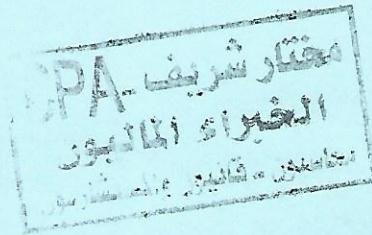 مختار شريف - CPA
الخبراء الماليون
محاسبون - قانونيون